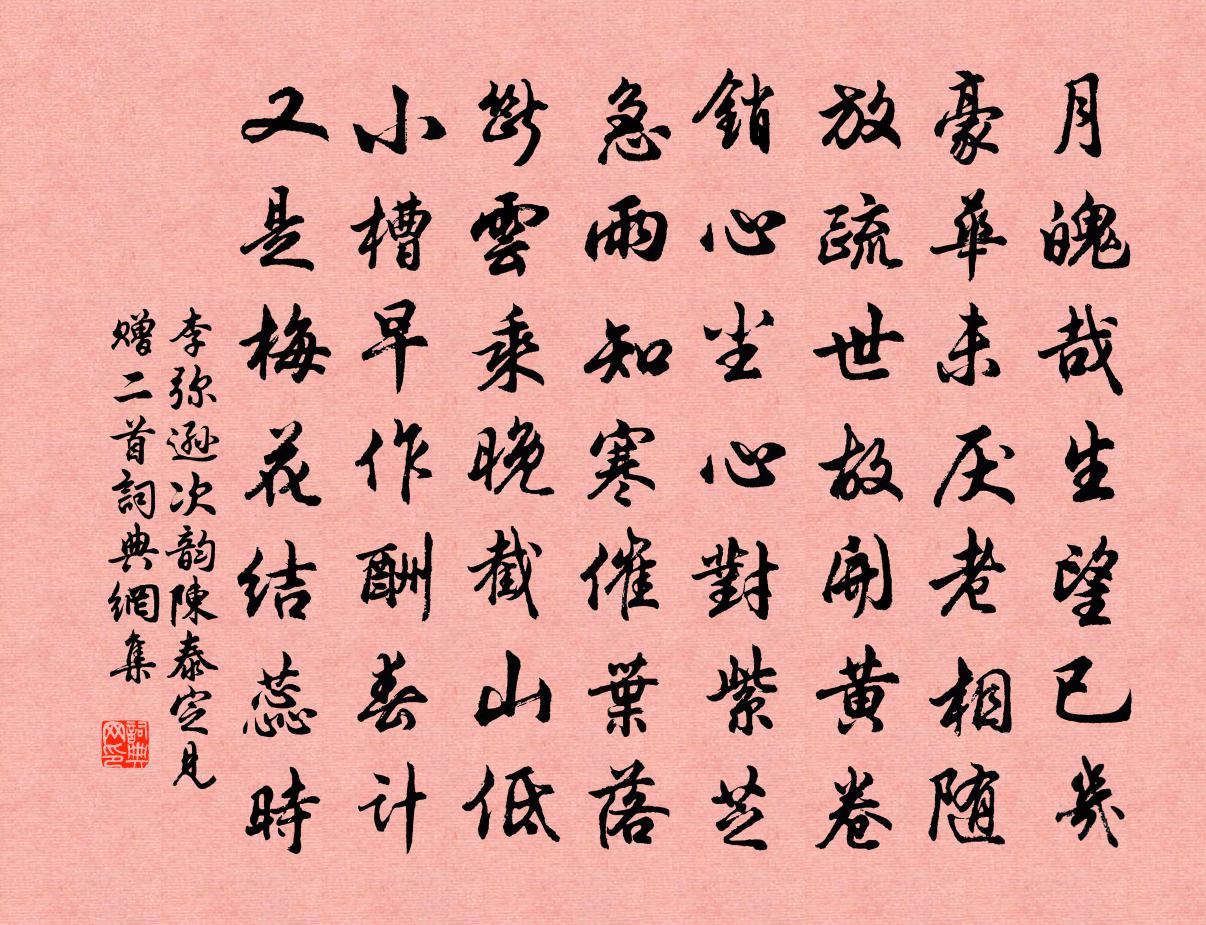 月魄哉生望已幾
豪華未厌老相随
放疏世故開黄卷
銷心坐心對紫芝
急雨知寒催葉落
斷雲乘晚截山低
小槽早作酬春計
又是梅花结蕊時
李弥遜次韵陳泰定見
赠二首詞典網集
詞典网印